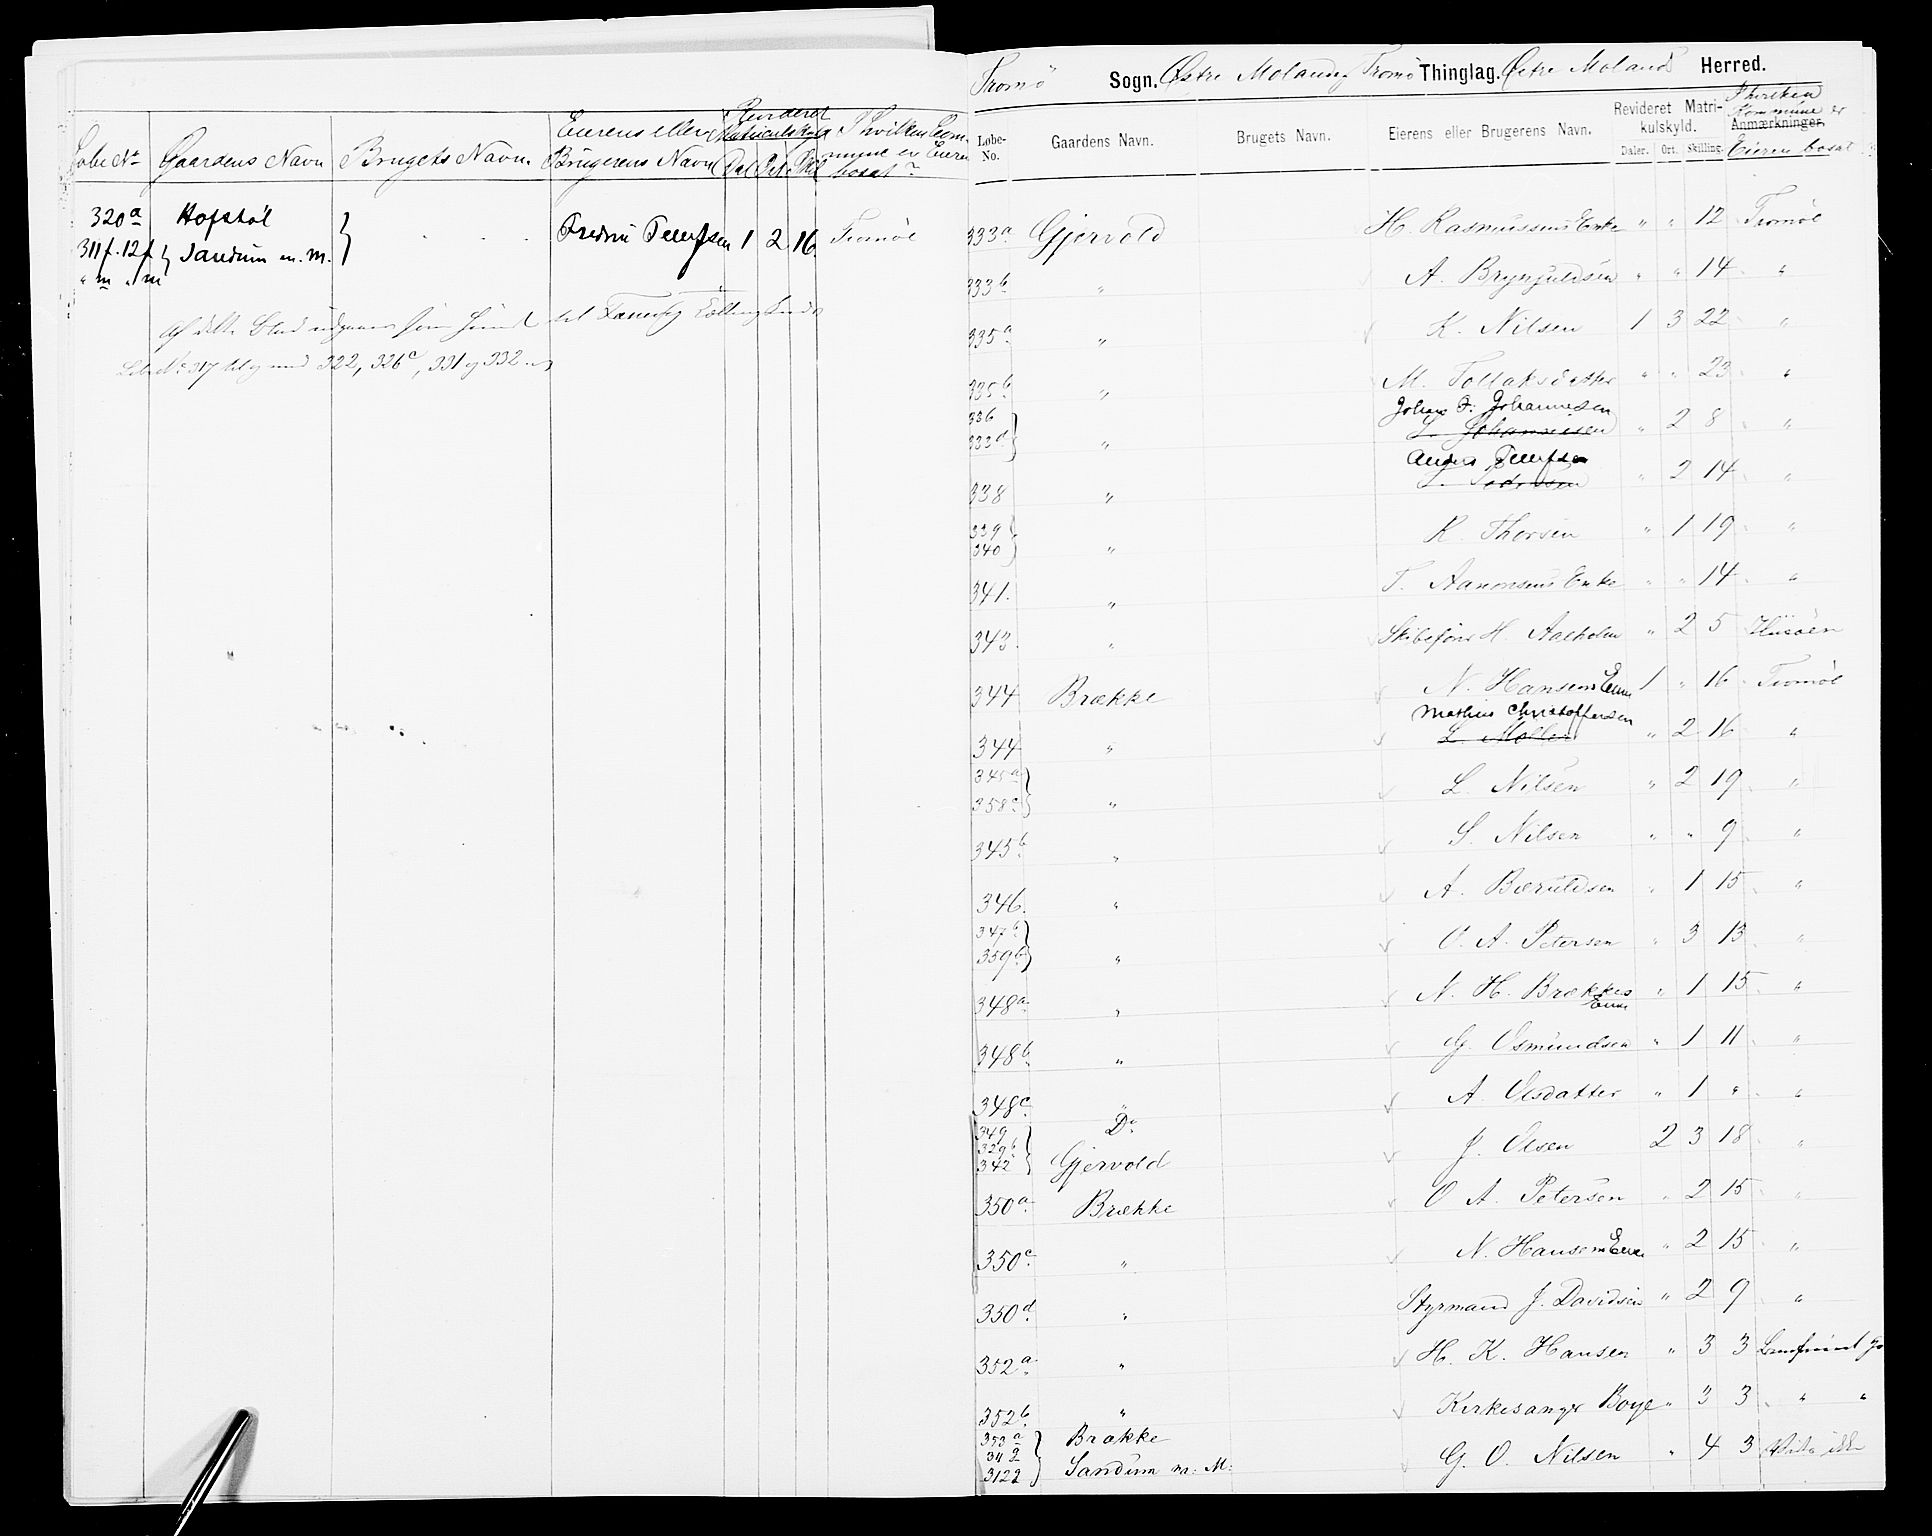 Løbe No Gaardens Navn Brugets Navn. Eierens eller Brugerens Navn Revideret Matriculskyld Dal Ort Skil I hvilken Commune er Eieren bosat?
320a Hofstøl
311f. 12f Sandum m. M. Fredrik Tellefsen 1 2 16 Tromøe
" m " m
Af dette Blad udgaaer som
Løbe No 317 til og med 322, 326c, 331 og 332.
Tromø Sogn. Østre Moland og Tromø Thinglag. Østre Moland Herred.
Løbe-No. Gaardens Navn. Brugets Navn. Eierens eller Brugerens Navn. Revideret Matrikulskyld. Daler. Ort. Skilling. I hvilken Kommune er Anmærkninger. Eieren bosat
333a Gjervold H. Rasmussens Enke " " 12 Tromøe
333b " A. Brynjuldsen " " 14 "
335a " K. Nilsen 1 3 22 "
335b " M. Tollaksdatter " " 23 "
336 Johans F. Johannesen
333d " L. Johannesen " 2 8 "
Anders Tellefsen
338 " L. Pedersen " 2 14 "
339
340 " R. Thorsen " 1 19 "
341. " T. Aanonsens Enke " " 14 "
343. " Skibsfører H. Aalholm " 2 5 Hisøen
344 Brække N. Hansens Enke 1 " 16 Tromøe
Mathias Christoffersen
344 " L. Møller " 2 16 "
345a
358c " L. Nilsen " 2 19 "
345b. " S. Nilsen " " 9 "
346. " A. Bæruldsen " 1 15 "
347b
359b " O. A. Petersen " 3 13 "
348a. " N. H. Brækkes Enke " 1 15 "
348b. " G. Osmundsen " 1 11 "
348c. " A. Olsdatter " 1 " "
349 Do
329b
342 Gjervold J. Olsen 2 3 18 "
350a. Brække O A. Petersen " 2 15 "
350c. " N. Hansens Enke " 2 15 "
350d. " Styrmand J. Davidsen " 2 9 "
352a. " H. K. Hansen " 3 3
352b. " Kirkesanger Boye " 3 3 " "
353a Brække
34g
312g Sandum m: M: G. O. Nilsen " 4 3 Vides ikke